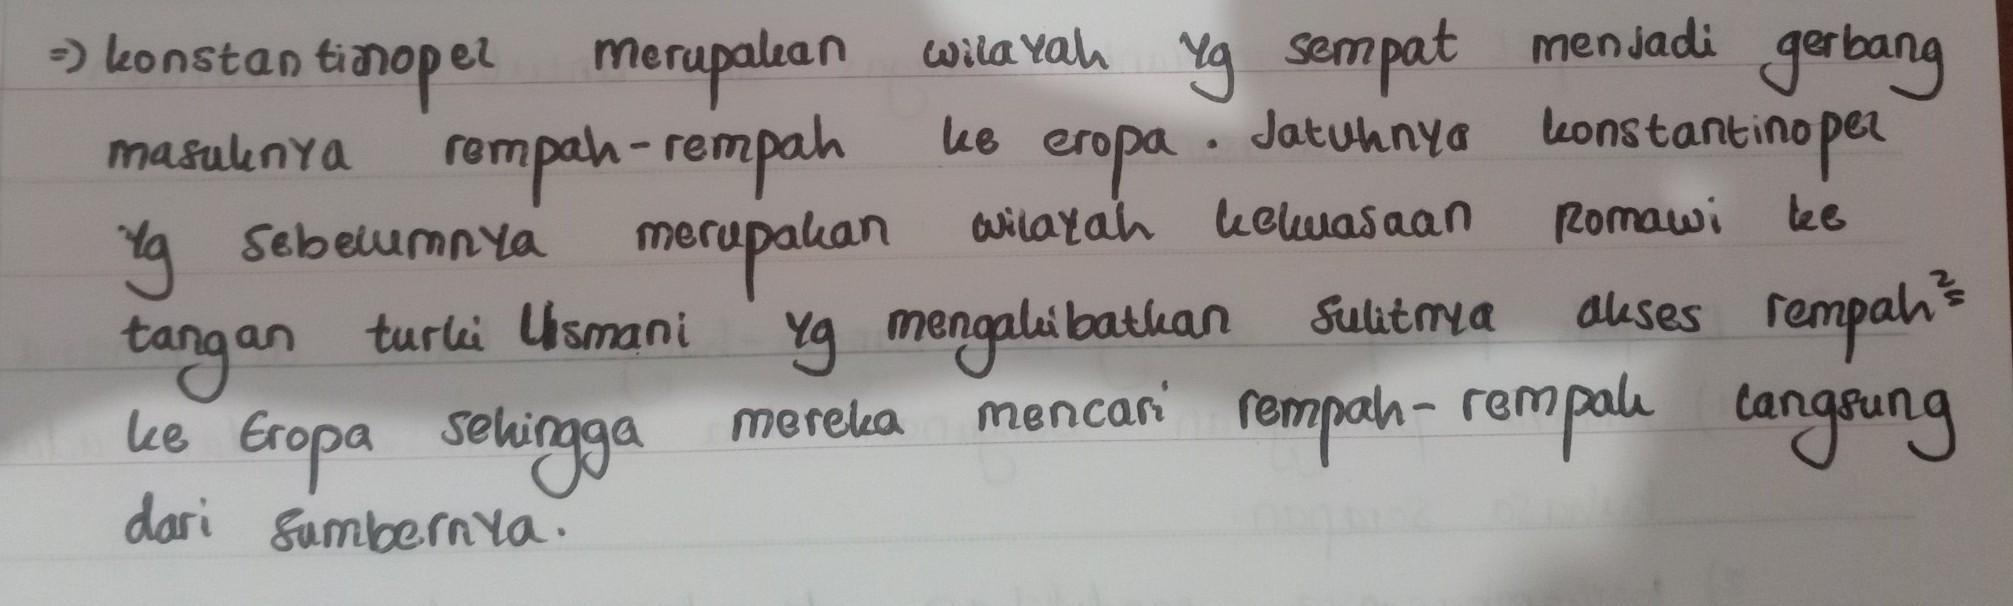 => konstantinopel merupakan wilayah yg sempat menjadi gerbang
masuknya rempah-rempah ke eropa. Jatuhnya konstantinopel
yg sebelumnya merupakan wilayah kekuasaan Romawi ke
tangan turki Usmani yg mengakibatkan sulitnya akses rempah²
ke Eropa sehingga mereka mencari rempah-rempah langsung
dari sumbernya.